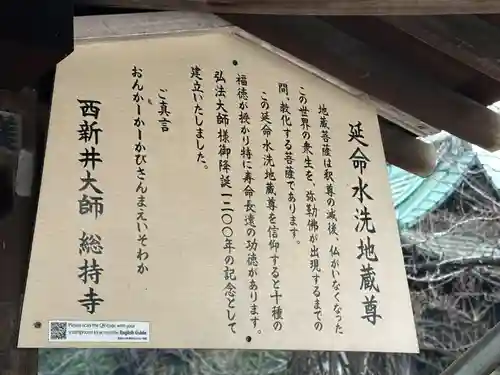 延命水洗地蔵尊
地蔵菩薩は釈尊の滅後、仏がいなくなった
この世界の衆生を、弥勒佛が出現するまでの
間、教化する菩薩であります。
この延命水洗地蔵尊を信仰すると十種の
福徳が授かり特に寿命長遠の功徳があります。
弘法大師様御降誕一二〇〇年の記念として
建立いたしました。
ご真言
おんかーかーかびさんまえいそわか
西新井大師 総持寺
Please scan the QR code with your
smartphone to access the English Guide